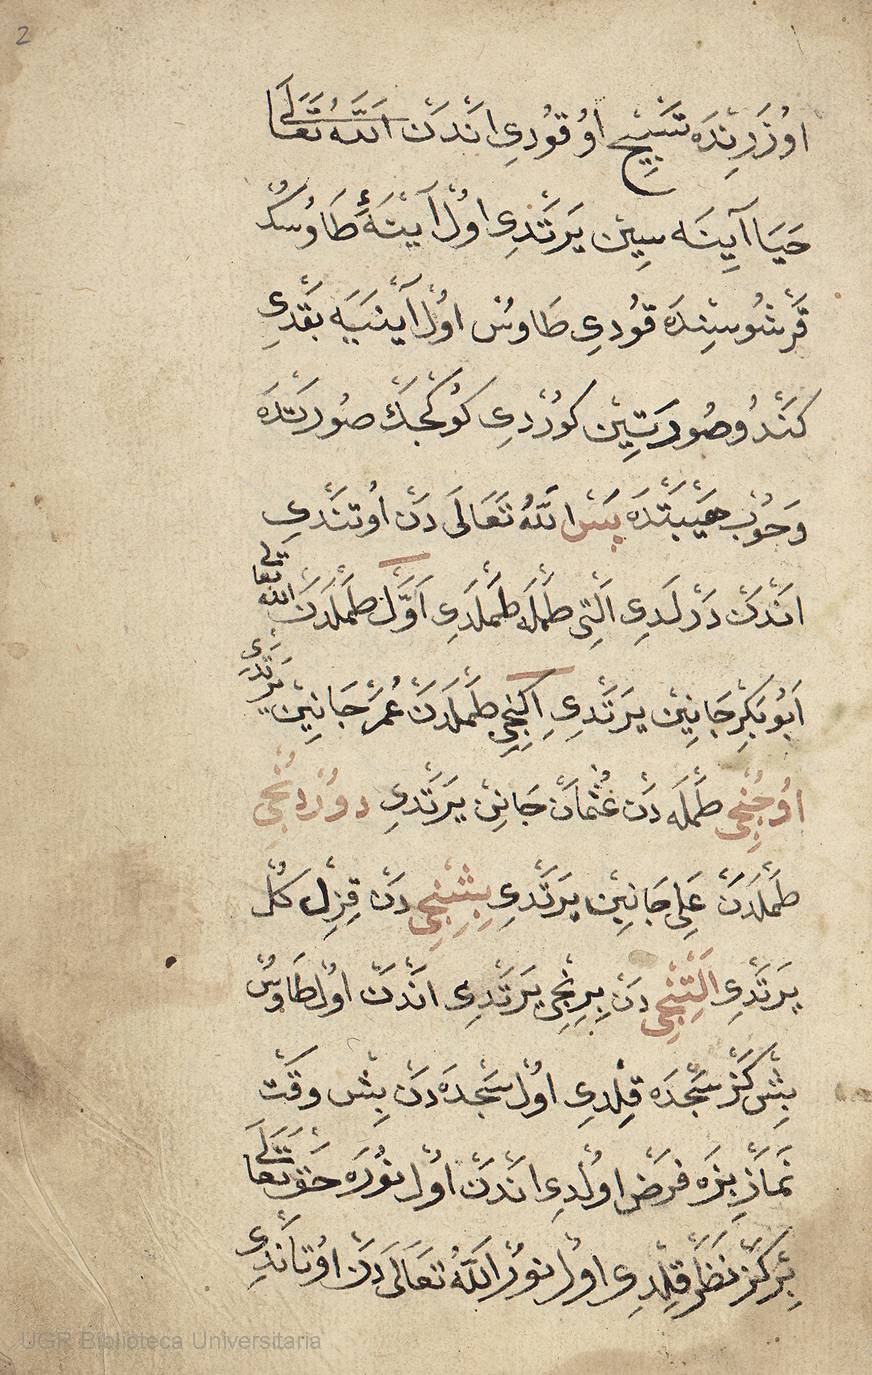 2
اوُزَرِنْدَه تَسْبِيحْ اوُقوُدِى اَنْدَنْ اَللّٰهُ تَعَالَى
حَيَا آيِنَه سِينْ يَرَتْدِى اوُلْ آيْنَهءِ طَاوُسُكْ
قَرْشُوسِنْدَه قوُدِى طَاوسْ اوُلْ آيْنَيَه بَقْدِى
كَنْدُو صُورَتِينْ كورْدِى كوُكْجَكْ صوُرَتْدَه
وَخُوبْ هَيْبَتْدَه بَسْ اَللّٰهُ تَعَالَى دَنْ اوُتَنْدِى
اَنْدَنْ دَرْلَدِى اَلْتِى طَمْلَه طَمْلَدِى اَوَّلْ طَمْلَدَنْ اللّٰه تعالى
اَبُو بَكِرْ جَانِينْ يَرَتْدِى اِكِنْجِى طَمْلَدَنْ عُمَرْ جَانِينْ يَرَتْدِى
اوُجُنْجِى طَمْلَه دَنْ عُثْمَانْ جَانِنْ يَرَتْدِى دوُرْدُنْجِى
طَمْلَدَنْ عَلِى جَانِينْ يَرَتْدِى بِشِنْجِى دَنْ قِزِلْ كُلْ
يَرَتْدِى اَلْتِنْجِى دَنْ بِرِنْجِى يَرَتْدِى اَنْدَنْ اوُلْ طَاوسْ
بِشْ كَزْ سَجْدَه قِلْدِى اوُلْ سَجْدَه دَنْ بِشْ وَقْتْ
نَمَازْ بِزَه فَرْضْ اوُلْدِى اَنْدَنْ اوُلْ نوُرَه حَقْ تَعَالَى
بِرْ كَزْ نَظَرْ قِلْدِى اوُلْ نوُرْ اَللّٰهُ تَعَالَى دَنْ اوُتَانْدِى
UGR Biblioteca Universitaria